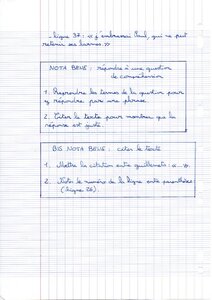 - ligne 37 : « j'embrassai Paul, qui ne put
retenir ses larmes »
NOTA BENE : répondre à une question
de compréhension
1. Reprendre les termes de la question pour
y répondre par une phrase.
2. Citer le texte pour montrer que la
réponse est juste.
BIS NOTA BENE : citer le texte
1. Mettre la citation entre guillemets : « ... ».
2. Noter le numéro de la ligne entre parenthèses
(ligne 26)